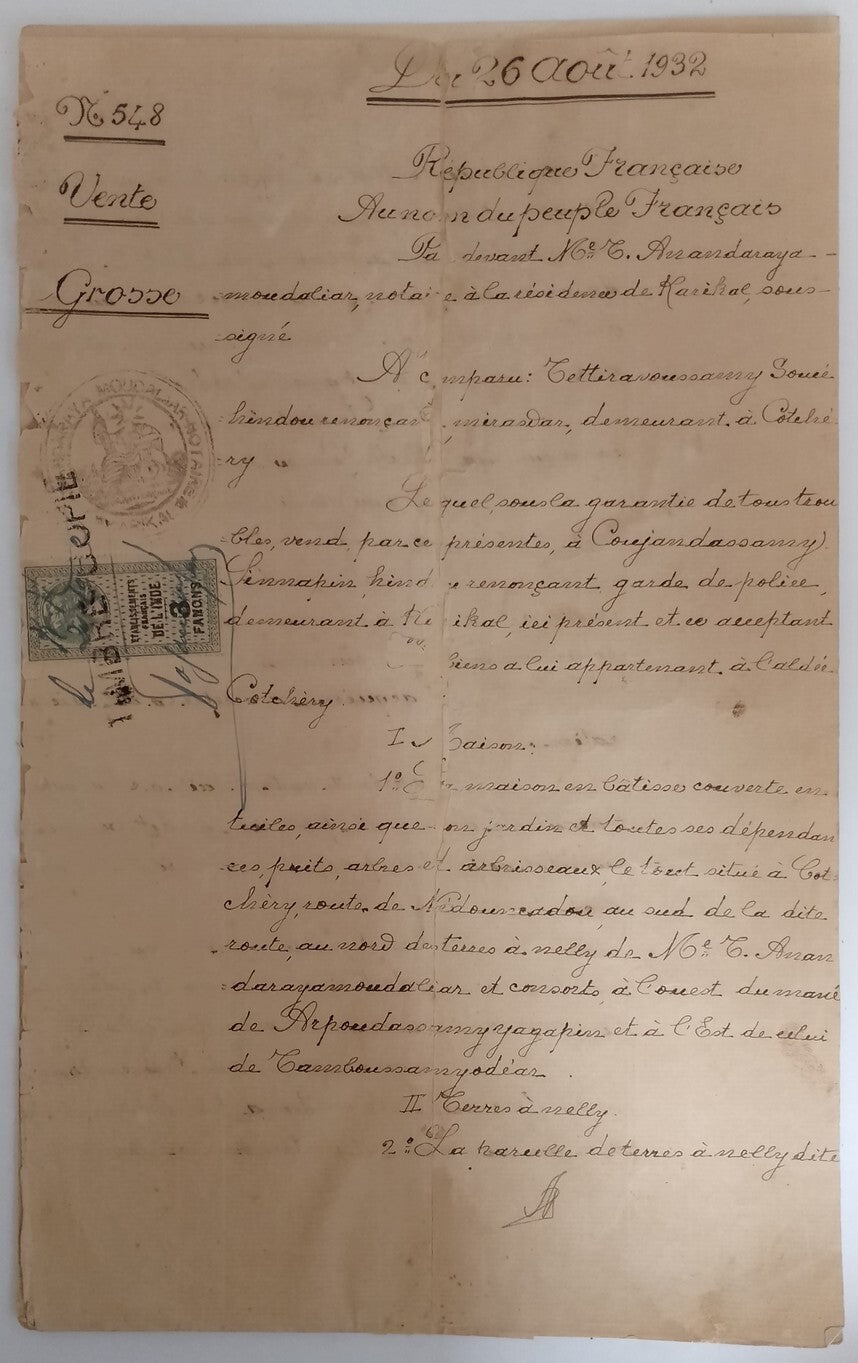 Du 26 Août 1932
N° 548
Vente
Grosse
République Française
Au nom du peuple Français
Pa devant Me T. Anandaraya-
moudaliar, notaire à la résidence de Karikal, sous-
signé
A comparu: Tettiravoussamy Soucé
hindou renonçant, mirasdar, demeurant à Cotché-
ry
Lequel sous la garantie de tous trou
bles, vend par ce présentes, à Coujandassamy
Sinnapin, hindou renonçant garde de police,
demeurant à Karikal, ici présent et ce acceptant
biens a lui appartenant à l'aldée
Cotchéry.
I Maison:
1° La maison en bâtisse couverte en
tuiles, ainsi que son jardin et toutes ses dépendan
ces, puits, arbres et arbrisseaux, le tout situé à Cot-
chéry, route de Nédouncadou, au sud de la dite
route, au nord des terres à nelly de Me T. Anan
darayamoudaliar et consorts, à l'ouest du mané
de Arpoudassamy yagapin et à l'Est de celui
de Tamboussamyodéar.
II Terres à nelly.
2° La parcelle de terres à nelly dite
MOUDALIAR NOTAIRE
TIMBRE COPIE
ETABLISSEMENTS
FRANÇAIS
DE L'INDE
3
FANONS